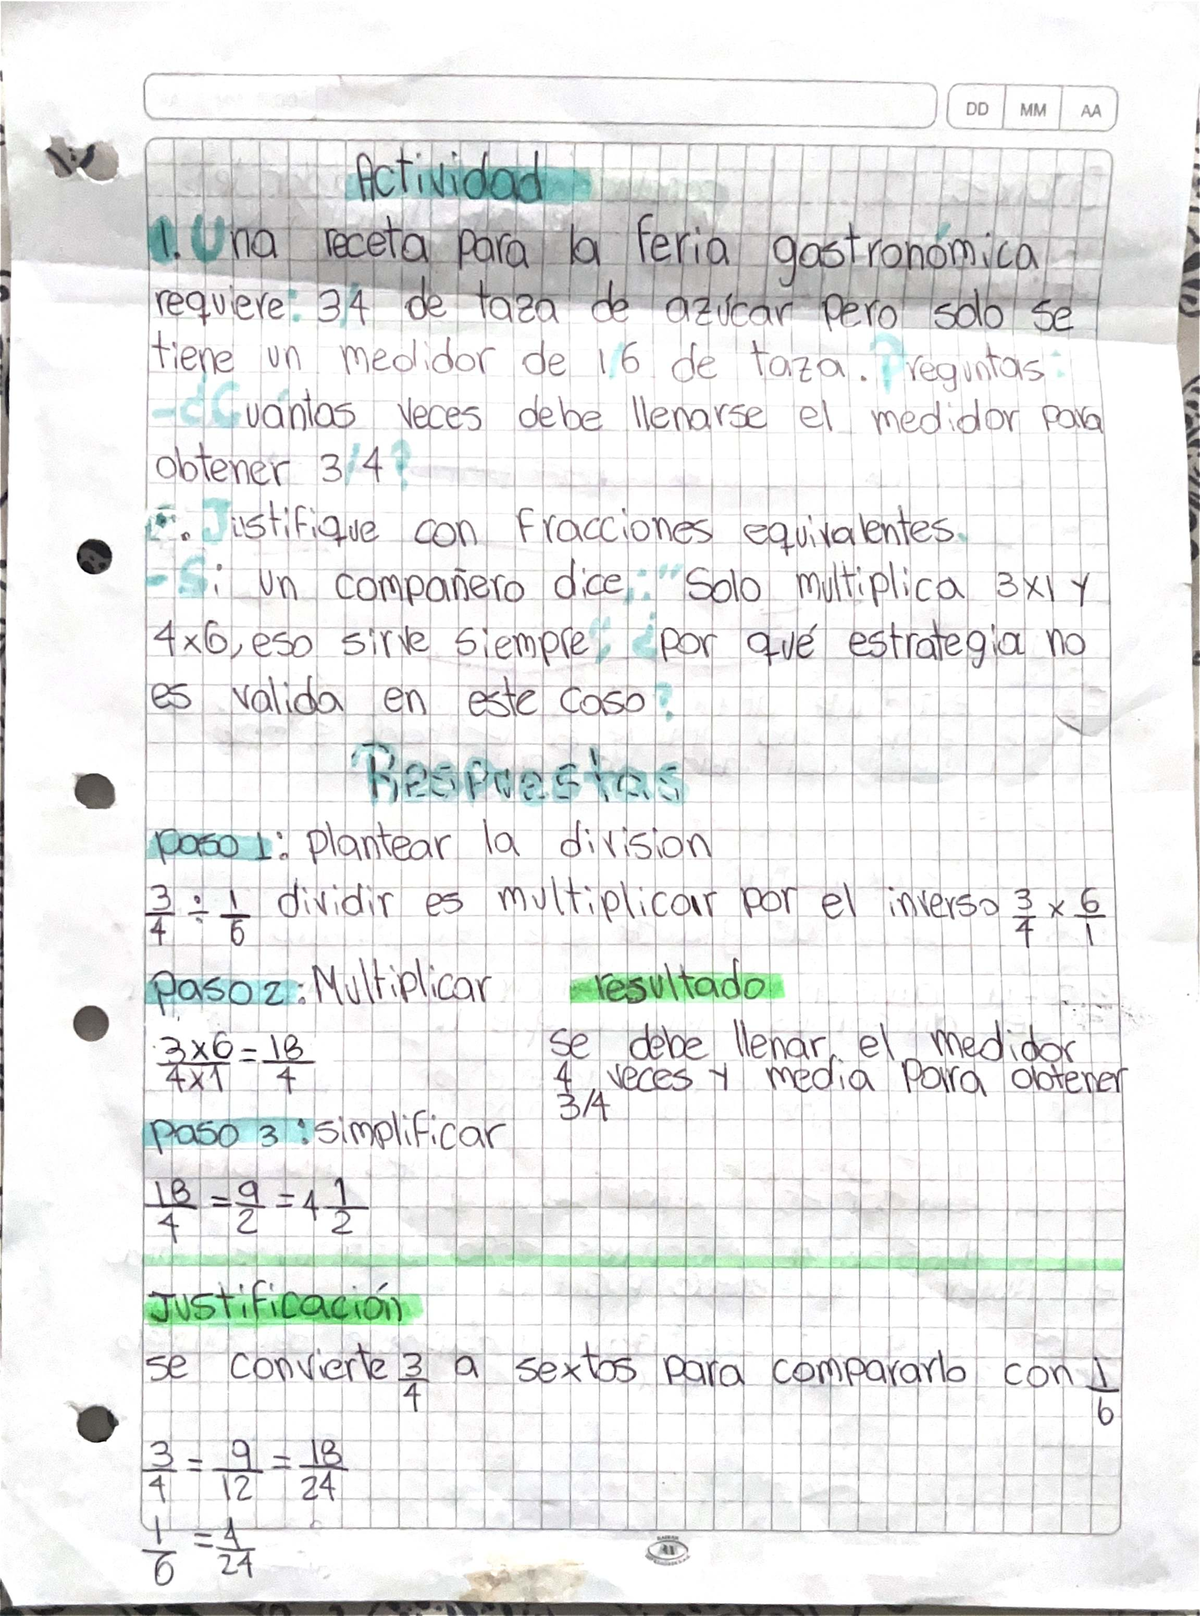 DD MM AA
Actividad
1. Una receta para la feria gastronómica
requiere: 3/4 de taza de azúcar pero solo se
tiene un medidor de 1/6 de taza. Preguntas:
-¿Cuántas veces debe llenarse el medidor para
obtener 3/4?
. Justifique con fracciones equivalentes.
-Si un compañero dice: "Solo multiplica 3x1 y
4x6, eso sirve siempre", ¿por qué estrategia no
es valida en este caso?
Respuestas
paso 1: plantear la division
3/4 ÷ 1/6 dividir es multiplicar por el inverso 3/4 x 6/1
paso 2: Multiplicar resultado
3x6/4x1 = 18/4 se debe llenar el medidor
4 veces y media para obtener
3/4
paso 3: simplificar
18/4 = 9/2 = 4 1/2
Justificación
se convierte 3/4 a sextos para compararlo con 1/6
3/4 = 9/12 = 18/24
1/6 = 4/24